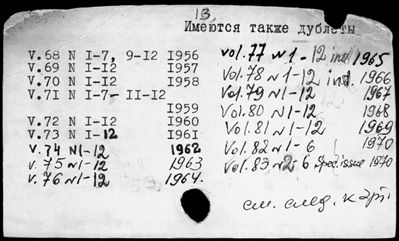 13.
Имеются также дублеты
V.68 N I-7, 9-I2 I956
V.69 N I-I2 I957
V.70 N I-I2 I958
V.7I N I-7- II-I2
I959
V.72 N I-I2 I960
V.73 N I-12 I96I
V.74 N1-12 1962
V.75 N1-12 1963
V.76 N1-12 1964.
Vol.77 N1-12 ind. 1965
Vol.78 N1-12 ind. 1966
Vol.79 N1-12 1967
Vol.80 N1-12 1968
Vol.81 N1-12 1969
Vol.82 N1-6 1970
Vol.83 N2-6 Spec.issue 1970
см. след. карт.